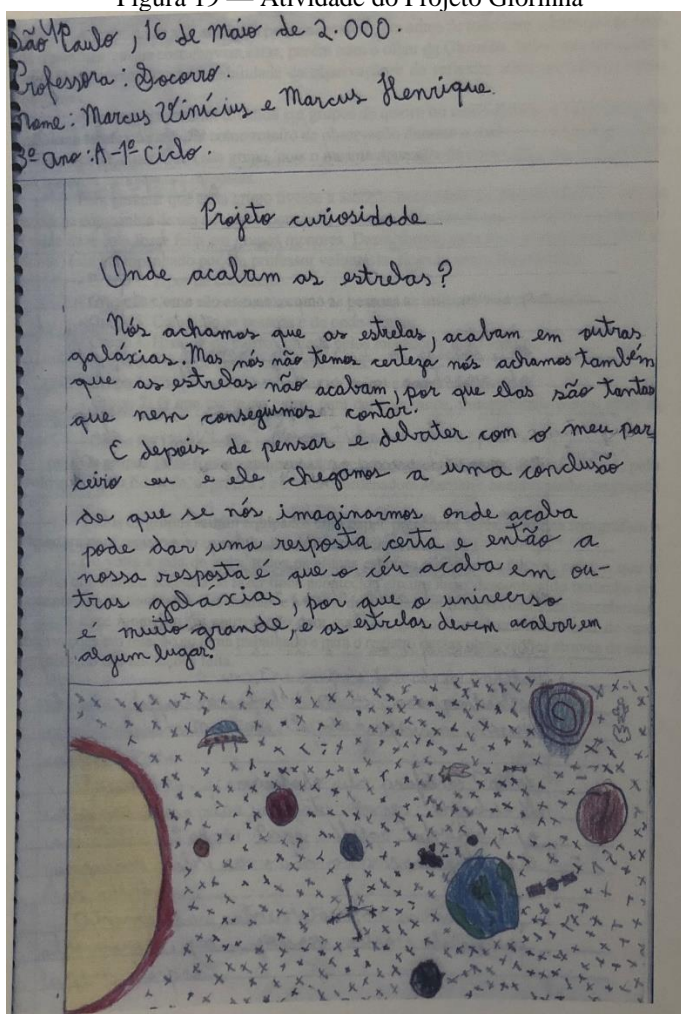 Figura 19 — Atividade do Projeto Giorinha
São Paulo, 16 de maio de 2.000.
Professora: Socorro.
Nome: Marcus Vinícius e Marcus Henrique.
3º ano: A-1º Ciclo.
Projeto curiosidade
Onde acabam as estrelas?
Nós achamos que as estrelas, acabam em outras
galáxias. Mas nós não temos certeza nós achamos também
que as estrelas não acabam, por que elas são tantas
que nem conseguimos contar.
E depois de pensar e debater com o meu par
ceiro eu e ele chegamos a uma conclusão
de que se nós imaginarmos onde acaba
pode dar uma resposta certa e então a
nossa resposta é que o céu acaba em ou-
tras galáxias, por que o universo
é muito grande, e as estrelas devem acabar em
algum lugar.